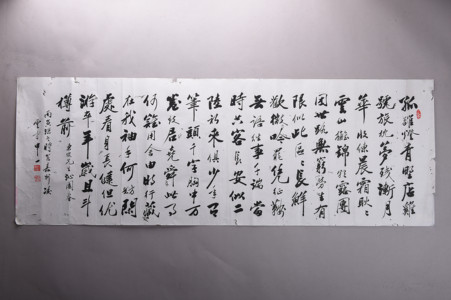 孤館燈青野店雞
號旅枕夢殘漸月
華收練晨霜耿耿
雲山摛錦朝露團
團世路無窮勞生有
限似此區區長鮮
歡微吟罷凭征鞍
無語往事千端當
時共客長安似二
陸初來俱少年有
筆頭千字胸中万
卷致君堯舜此事
何難用舍由時行藏
在我袖手何妨閑
處看身長健但優
游卒歲且斗
樽前 東坡先生沁園春